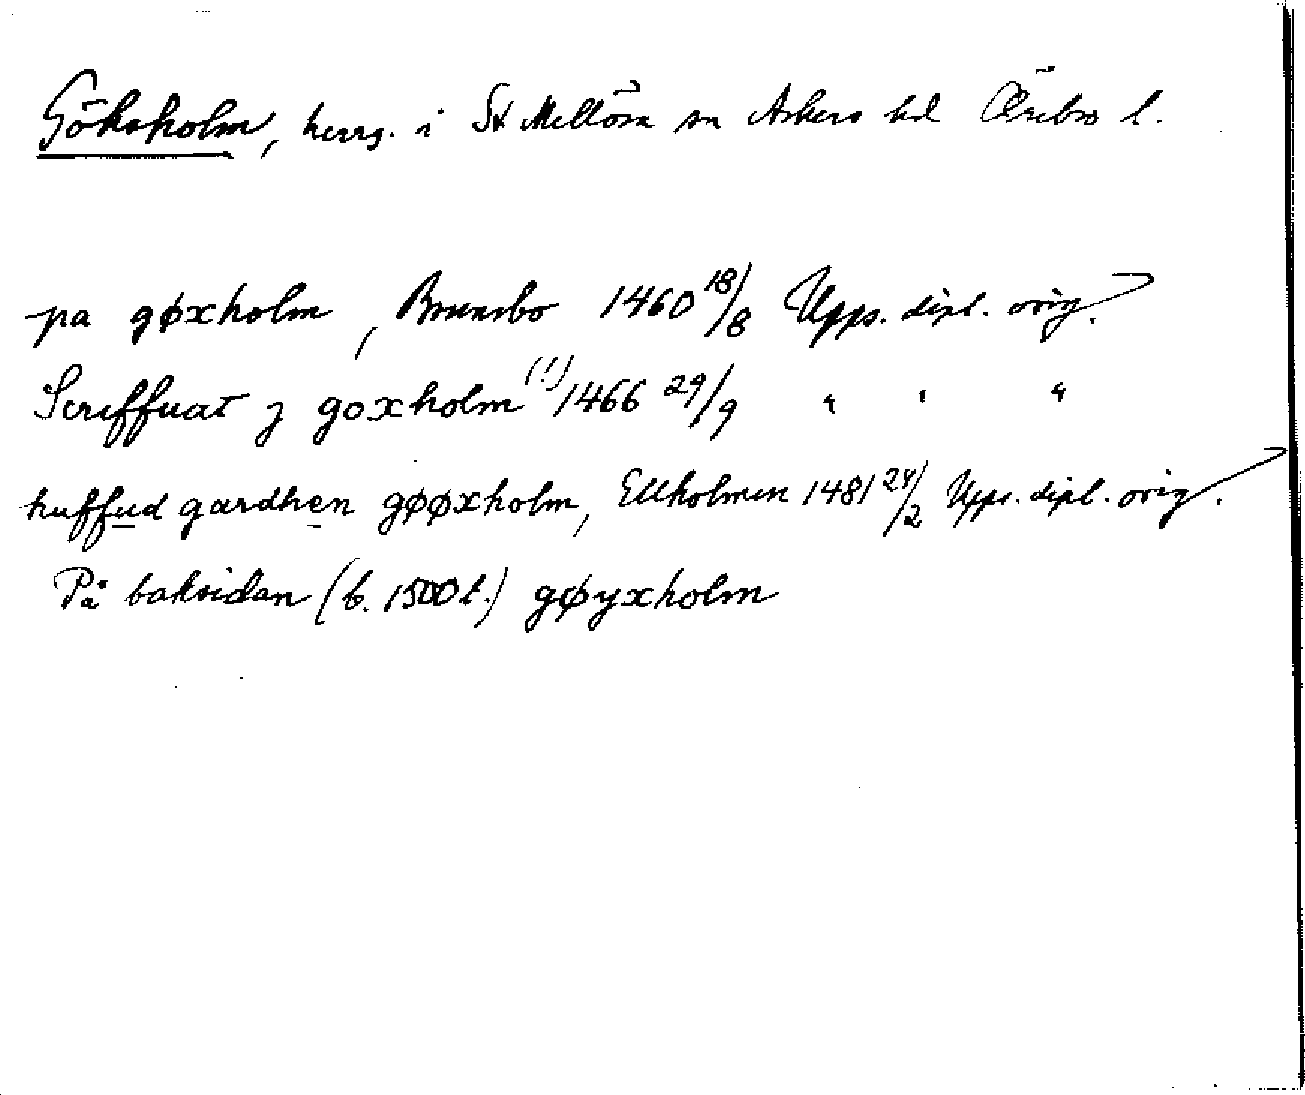 Göksholm, herrg. i St Mellösa sn Askers hd Örebro l.
pa gøxholm, Brunsbo 1460 18/8 Upps. dipl. orig.
Screffuat j goxholm (!) 1466 29/9 " " "
huffud gardhen gøøxholm, Ekholmen 1481 24/2 Upps. dipl. orig.
På baksidan (b. 1500 t.) gøyxholm